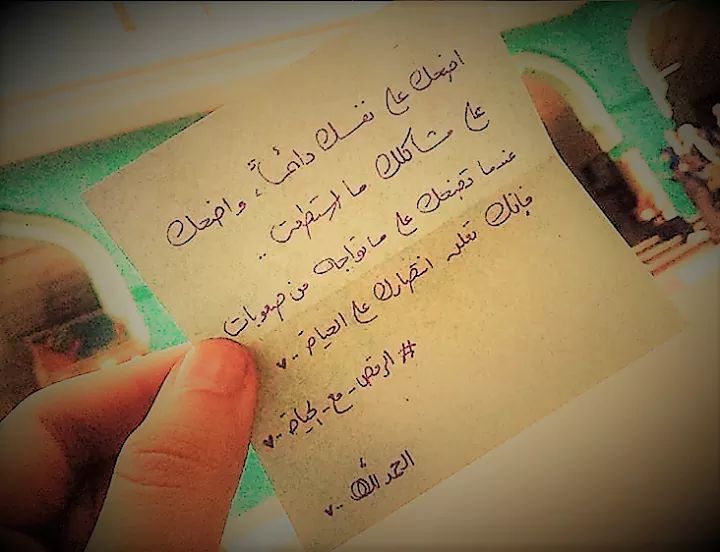 اضحك على نفسك دائماً، واضحك
على مشاكلك ما استطعت ..
عندما تضحك على ما تواجه من صعوبات
فإنك تعلن انتصارك على الحياة .. ♥
# الرقص_مع_الحياة .. ♥
الحمد لله .. ♥